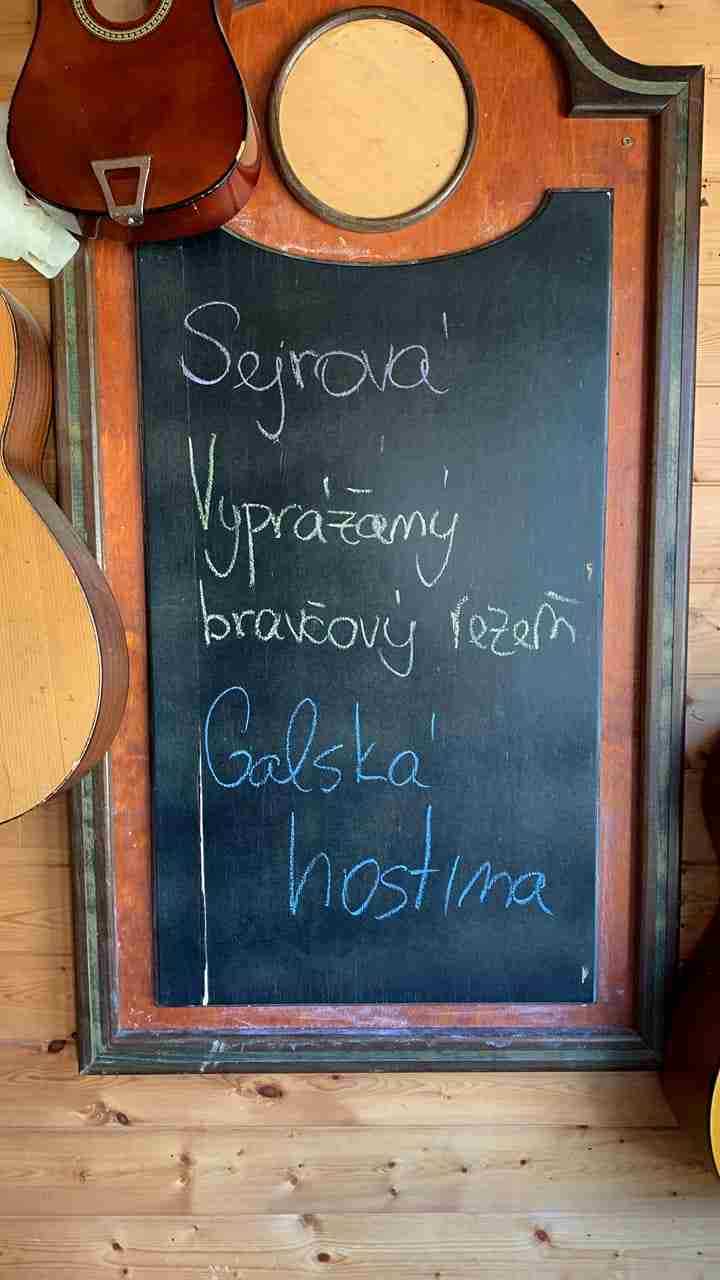 Sejrová
Vyprážamý
bravčový rezeň
Galská
hostina